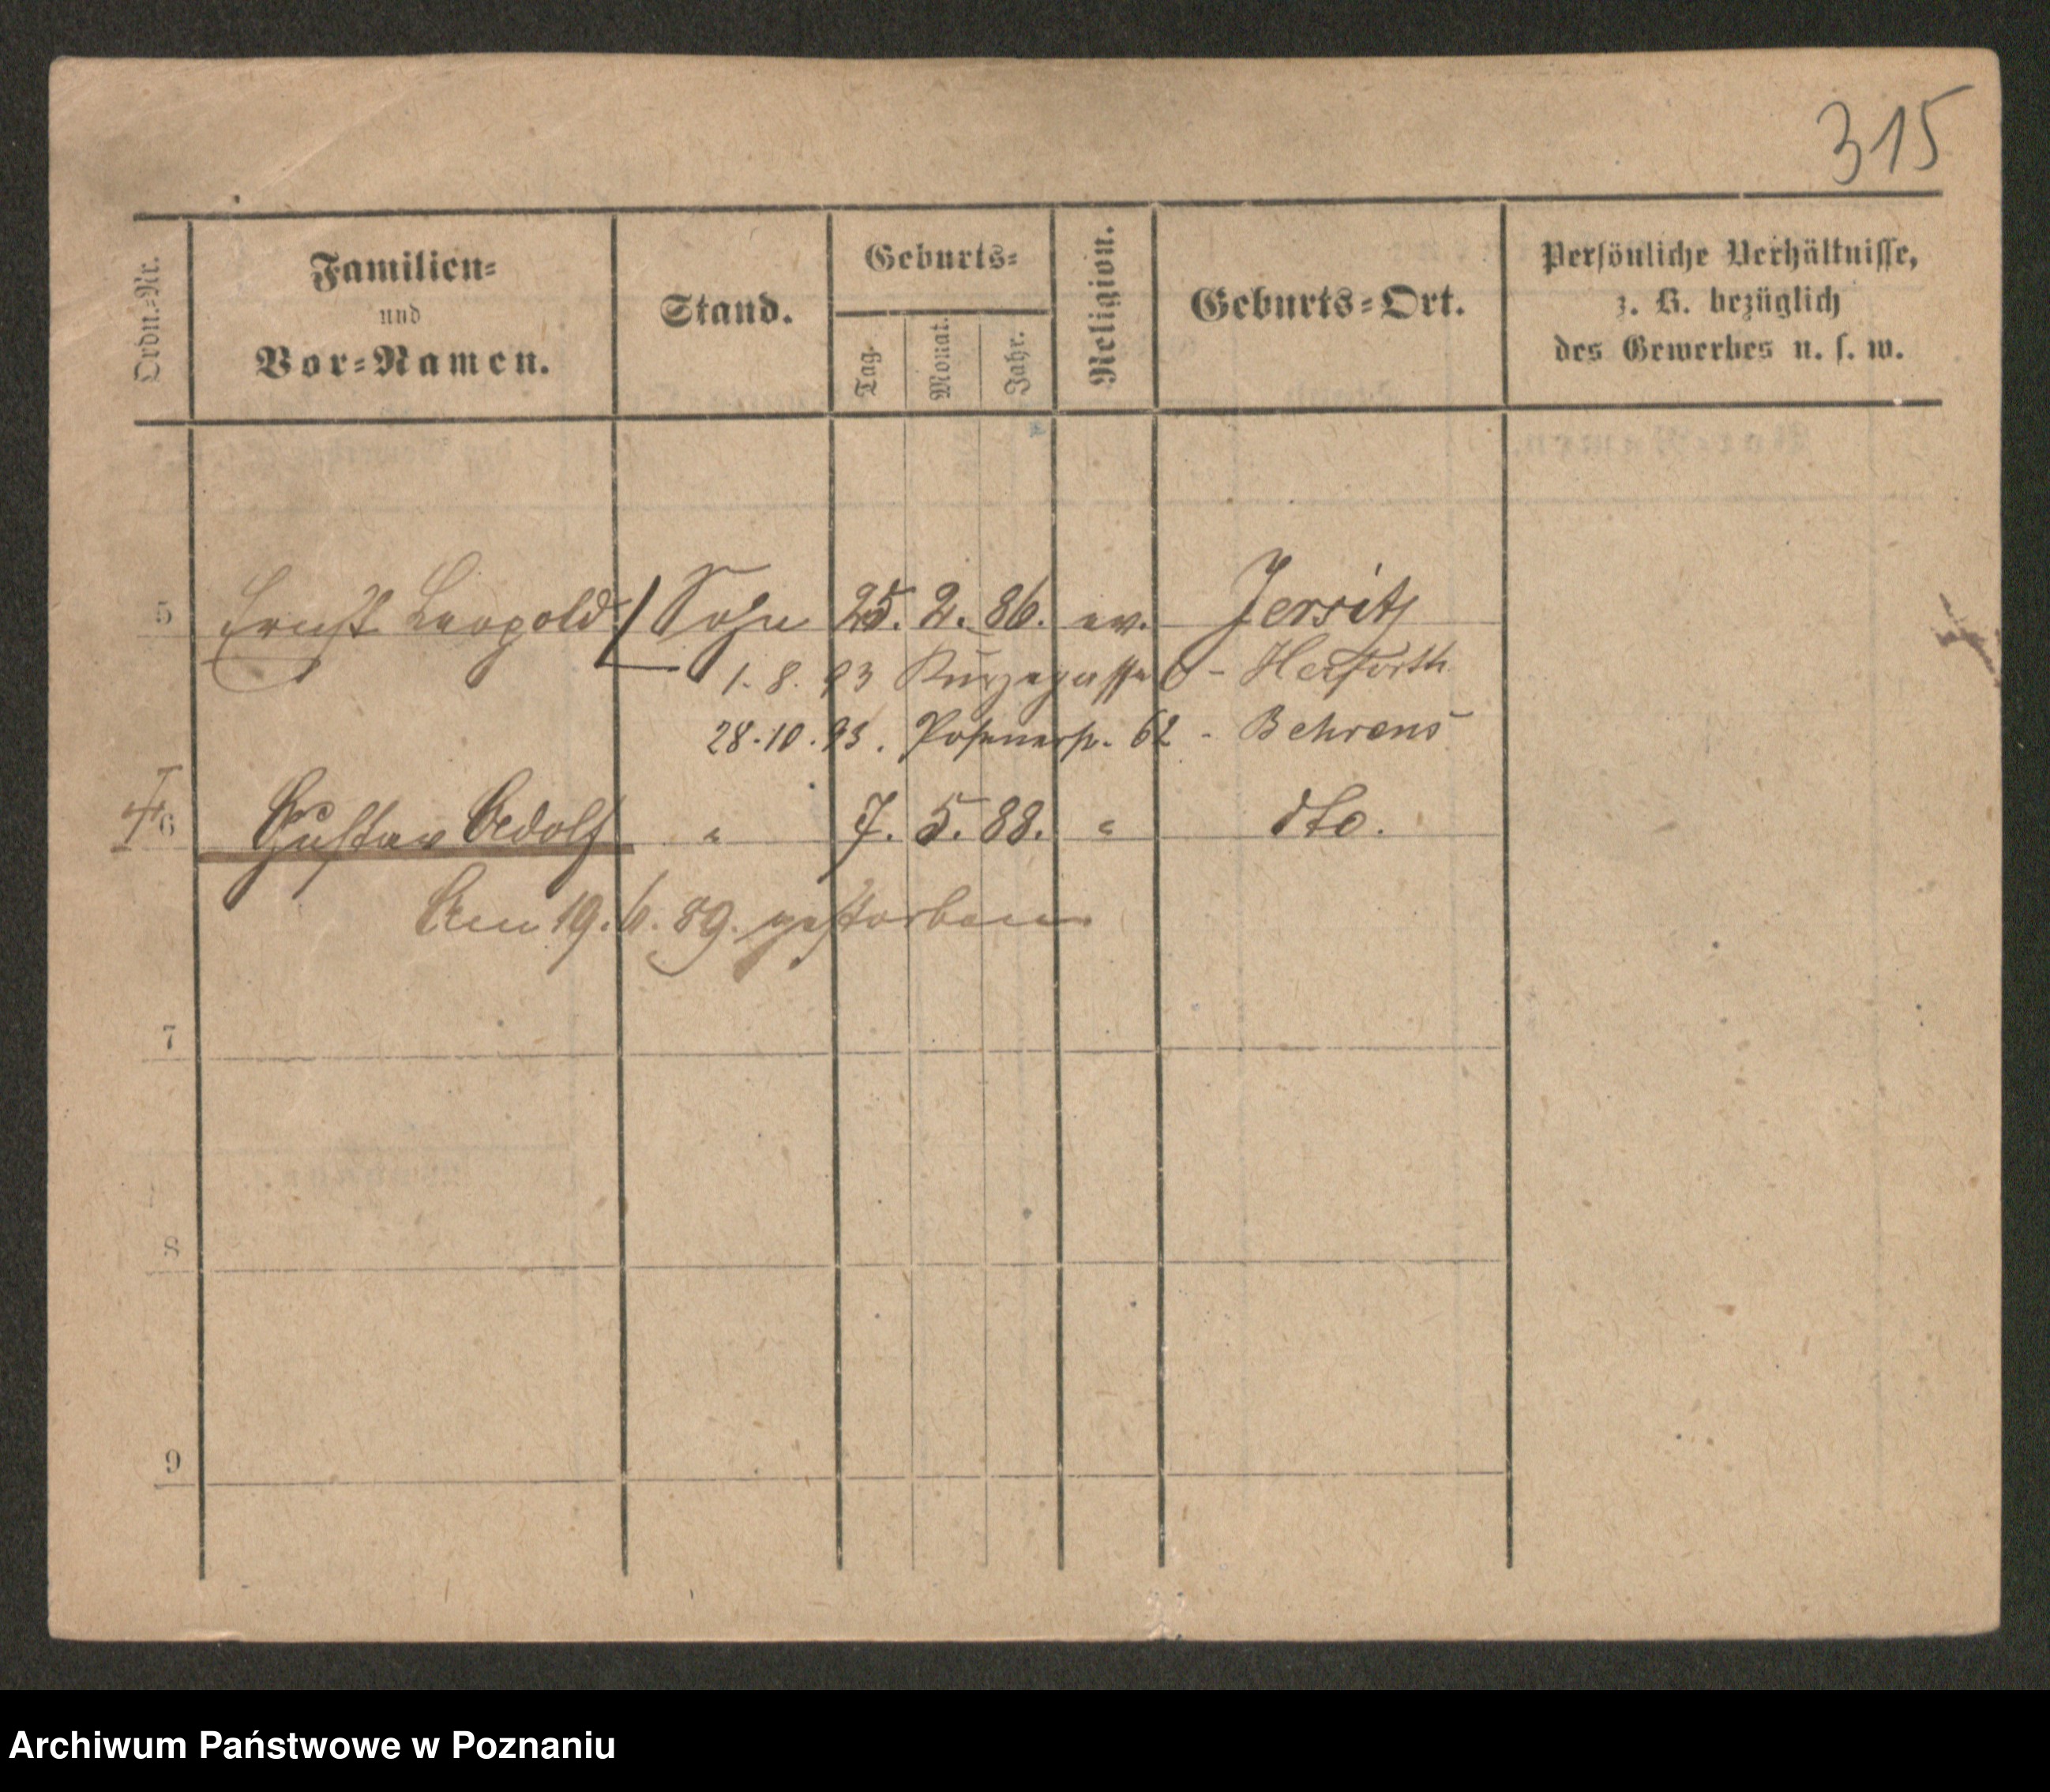 315
Ordn.-Nr.
Familien-
und
Vor-Namen.
Stand.
Geburts-
Tag.
Monat.
Jahr.
Religion.
Geburts-Ort.
Persönliche Verhältnisse,
z. B. bezüglich
des Gewerbes u. s. w.
5 Ernst Leopold Sohn 25. 2. 86. ev. Jersitz
1. 8. 93 Kurzegasse 6 - Herforth
28. 10. 93. Posenerstr. 62 - Behrens
6 Gustav Adolf " 7. 5. 88. " dto.
Am 19. 6. 89. gestorben.
7
8
9
Archiwum Państwowe w Poznaniu